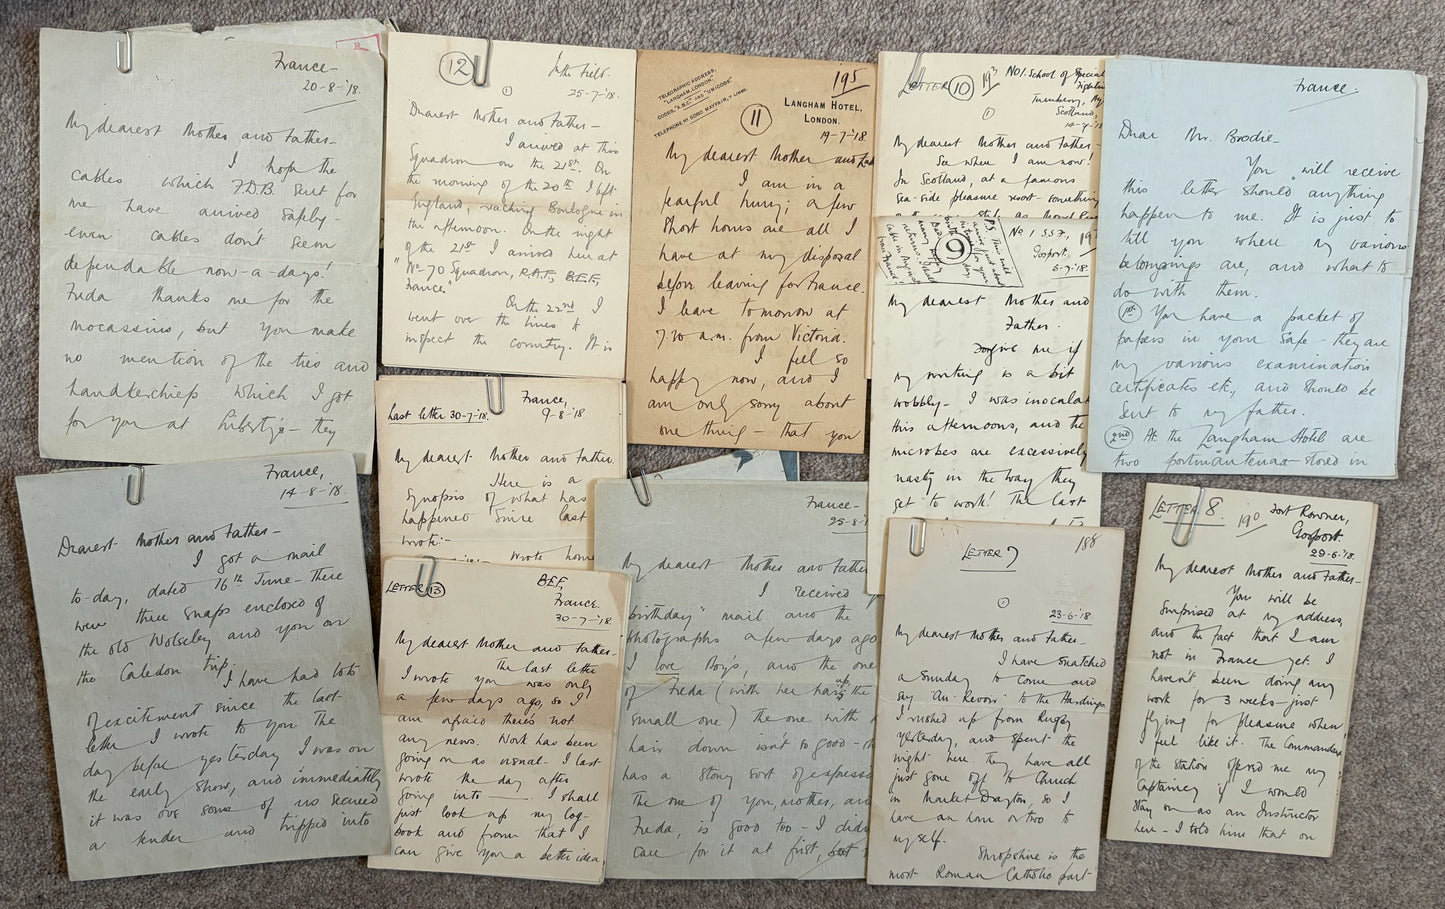 France-
20-8-'18.
My dearest Mother and Father-
I hope the
cables which F.D.B. sent for
me have arrived safely-
even cables don't seem
dependable now-a-days!
Freda thanks me for the
mocassins, but you make
no mention of the ties and
handkerchiefs which I got
for you at Liberty's - they
12
In the Field.
1
25-7-'18.
Dearest Mother and Father-
I arrived at this
Squadron on the 21st. On
the morning of the 20th I left
England, reaching Boulogne in
the afternoon. On the night
of the 21st I arrived here at
"No-70 Squadron, R.A.F., B.E.F.,
France."
On the 22nd I
went over the lines to
inspect the country. It is
TELEGRAPHIC ADDRESS,
"LANGHAM, LONDON."
CODES, "A.B.C." AND "UNICODE"
TELEPHONE Nº 5080 MAYFAIR, 7 LINES.
195
11
LANGHAM HOTEL,
LONDON.
19-7-'18.
My dearest Mother and
I am in a
fearful hurry; a few
short hours are all I
have at my disposal
before leaving for France.
I leave tomorrow at
7.20 a.m. from Victoria.
I feel so
happy now, and I
am only sorry about
one thing - that you
LETTER 10
193
No 1. School of Special
Fighting
1
Turnberry,
Scotland,
14-7-'18
My dearest Mother and Father-
See where I am now!
In Scotland, at a famous
sea-side pleasure resort - something
9
No 1 S.S.F.,
Gosport.
5-7-'18.
My dearest Mother and
Father.
Forgive me if
my writing is a bit
wobbly - I was
this afternoon, and the
microbes are excessively
nasty in the way they
get to work! The last
France.
Dear Mr. Brodie-
You will receive
this letter should anything
happen to me. It is just to
tell you where my various
belongings are, and what to
do with them.
1st You have a packet of
papers in your safe - they are
my various examination
certificates etc., and should be
sent to my father.
2nd At the Langham Hotel are
two portmanteaux stored in
Last letter 30-7-'18.
France,
9-8-'18
My dearest Mother and Father.
Here is a
synopsis of what has
happened since last
wrote:-
wrote home
France,
14-8-'18.
Dearest Mother and Father-
I got a mail
to-day, dated 16th June - there
were three snaps enclosed of
the old Wolseley and you on
the Caledon trip.
I have had lots
of excitement since the last
letter I wrote to you. The
day before yesterday I was on
the early show, and immediately
it was over some of us secured
a tender and tripped into
LETTER 13
B.E.F.,
France.
30-7-'18.
My dearest Mother and Father-
The last letter
I wrote you was only
a few days ago, so I
am afraid there's not
any news. Work has been
going on as usual. I last
wrote the day after
going into ——. I shall
just look up my log-
book and from that I
can give you a better idea
France-
25-8-'1
My dearest Mother and Father
I received
birthday" mail and the
photographs a few days ago
I love Roy's, and the one
of Freda (with her hair up, the
small one) the one with
hair down isn't so good -
has a stony sort of
The one of you, mother, and
Freda, is good too - I
care for it at first, but
LETTER 7
188
1
23-6-'18.
My dearest Mother and Father-
I have snatched
a Sunday to come and
say "Au Revoir" to the Hardings.
I rushed up from Rugby
yesterday, and spent the
night here. They have all
just gone off to Church
in Market Drayton, so I
have an hour or two to
myself.
Shropshire is the
most Roman Catholic part
LETTER 8
190
Fort Rowner,
Gosport.
29-6-'18.
My dearest Mother and Father-
You will be
surprised at my address,
and the fact that I am
not in France yet. I
haven't been doing any
work for 3 weeks - just
flying for pleasure when
I feel like it. The Commander
of the station offered me my
Captaincy if I would
stay on as an Instructor
here - I told him that on